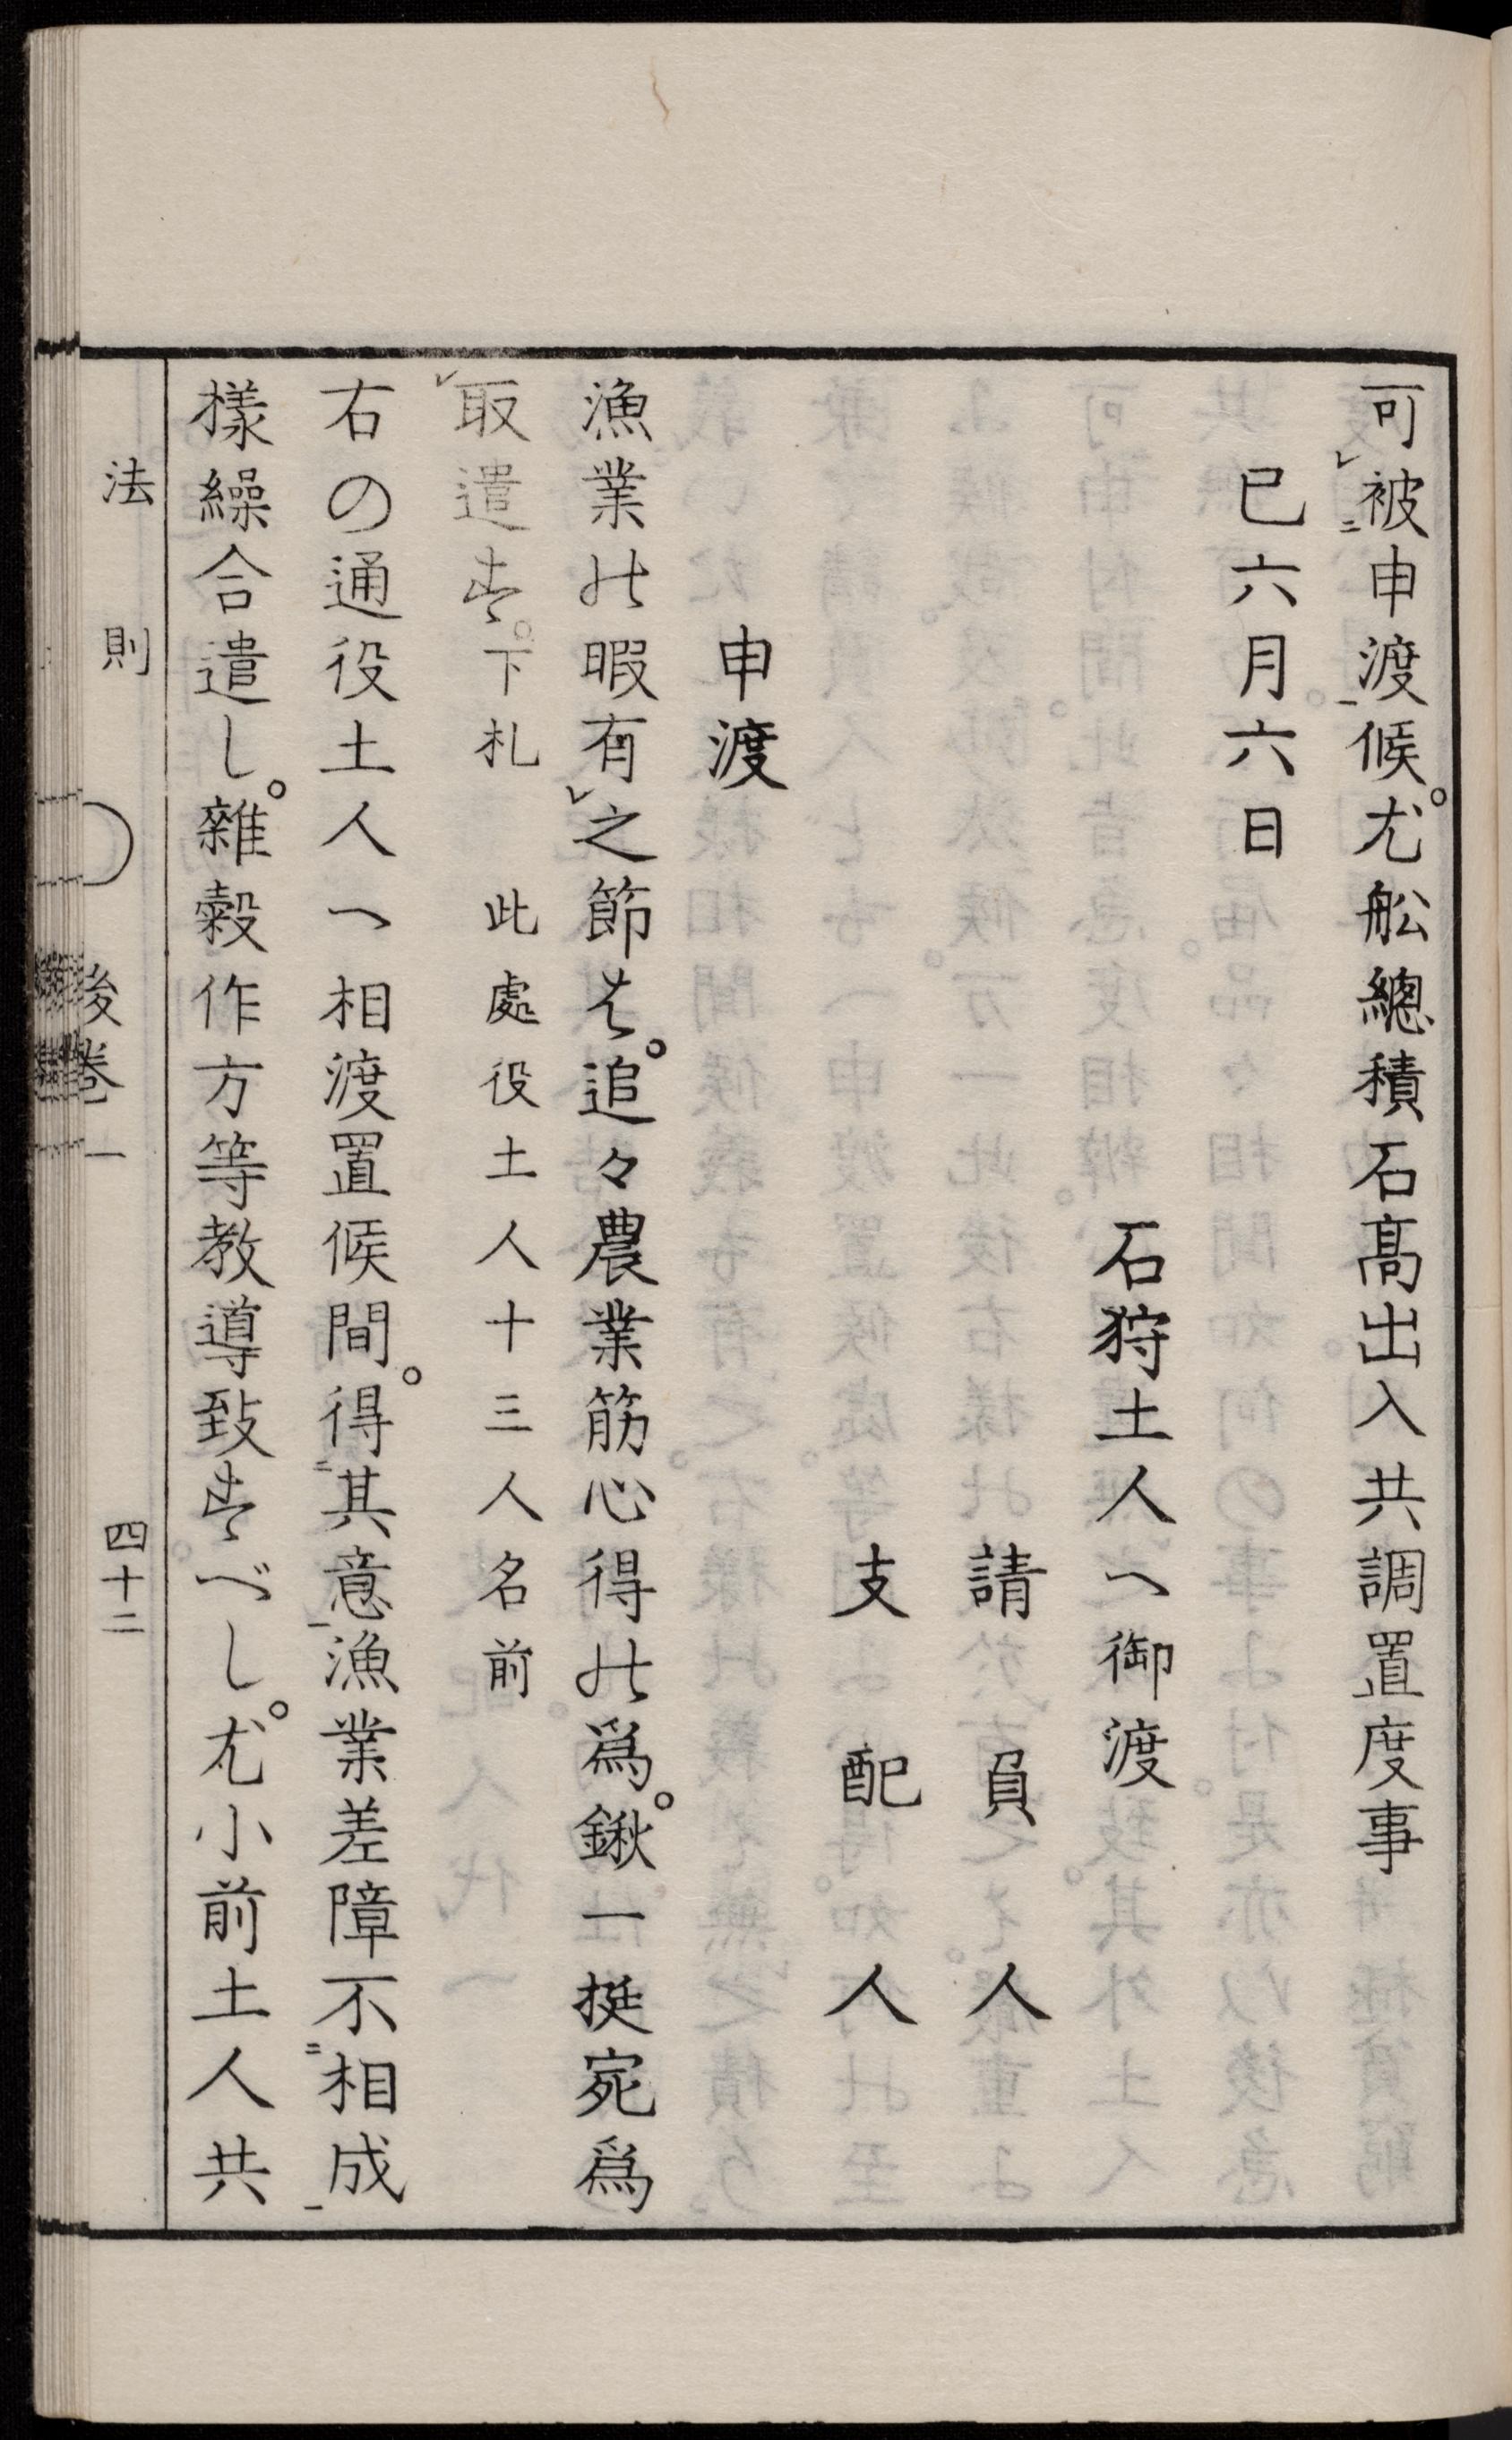 可㆑被㆓申渡㆒候。尤舩總積石髙出入共調置度事
巳六月六日
石狩土人へ御渡
請負人
支配人
申渡
漁業の暇有㆑之節は。追々農業筋心得の爲。鍬一挺宛爲
㆑取遣す。下札 此處役土人十三人名前
右の通役土人へ相渡置候間。得㆓其意㆒漁業差障不㆓相成㆒
樣繰合遣し。雜穀作方等教導致すべし。尤小前土人共
法則 後卷一 四十二